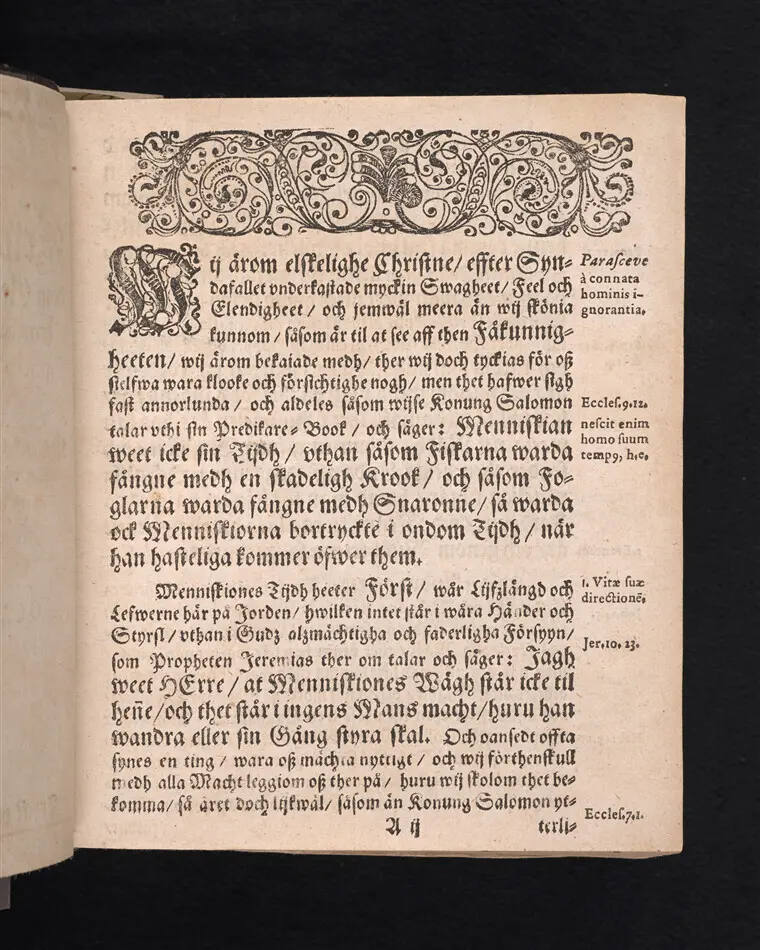 Wij ärom elskelighe Christne/ effter Syn-
dafallet vnderkastade myckin Swagheet/ Feel och
Elendigheet/ och jemwäl meera än wij skönia
kunnom/ såsom är til at see aff then Fåkunnig-
heeten/ wij ärom bekaiade medh/ ther wij doch tyckias för oß
sielfwa wara klooke och försichtighe nogh/ men thet hafwer sigh
fast annorlunda/ och aldeles såsom wijse Konung Salomon
talar vthi sin Predikare-Book/ och säger: Menniskian
weet icke sin Tijdh/ vthan såsom Fiskarna warda
fångne medh en skadeligh Krook/ och såsom Fo-
glarna warda fångne medh Snaronne/ så warda
ock Menniskiorna bortryckte i ondom Tijdh/ när
han hasteliga kommer öfwer them.
Menniskiones Tijdh heeter Först/ wår Lijfzlängd och
Lefwerne här på Jorden/ hwilken intet står i wåra Händer och
Styrsl/ vthan i Gudz alzmächtigha och faderligha Försyyn/
som Propheten Jeremias ther om talar och säger: Jagh
weet HErre/ at Menniskiones Wägh står icke til
heñe/ och thet står i ingens Mans macht/ huru han
wandra eller sin Gång styra skal. Och oansedt offta
synes en ting/ wara oß mächta nyttigt/ och wij förthenskull
medh alla Macht leggiom oß ther på/ huru wij skolom thet be-
komma/ så äret doch lijkwäl/ såsom än Konung Salomon yt-
A ij terli-
Parasceve
à connata
hominis i-
gnorantia.
Eccles.9.12.
nescit enim
homo suum
temp9, h.e.
1. Vitæ suæ
directionē.
Jer.10. 23.
Eccles.7.1.